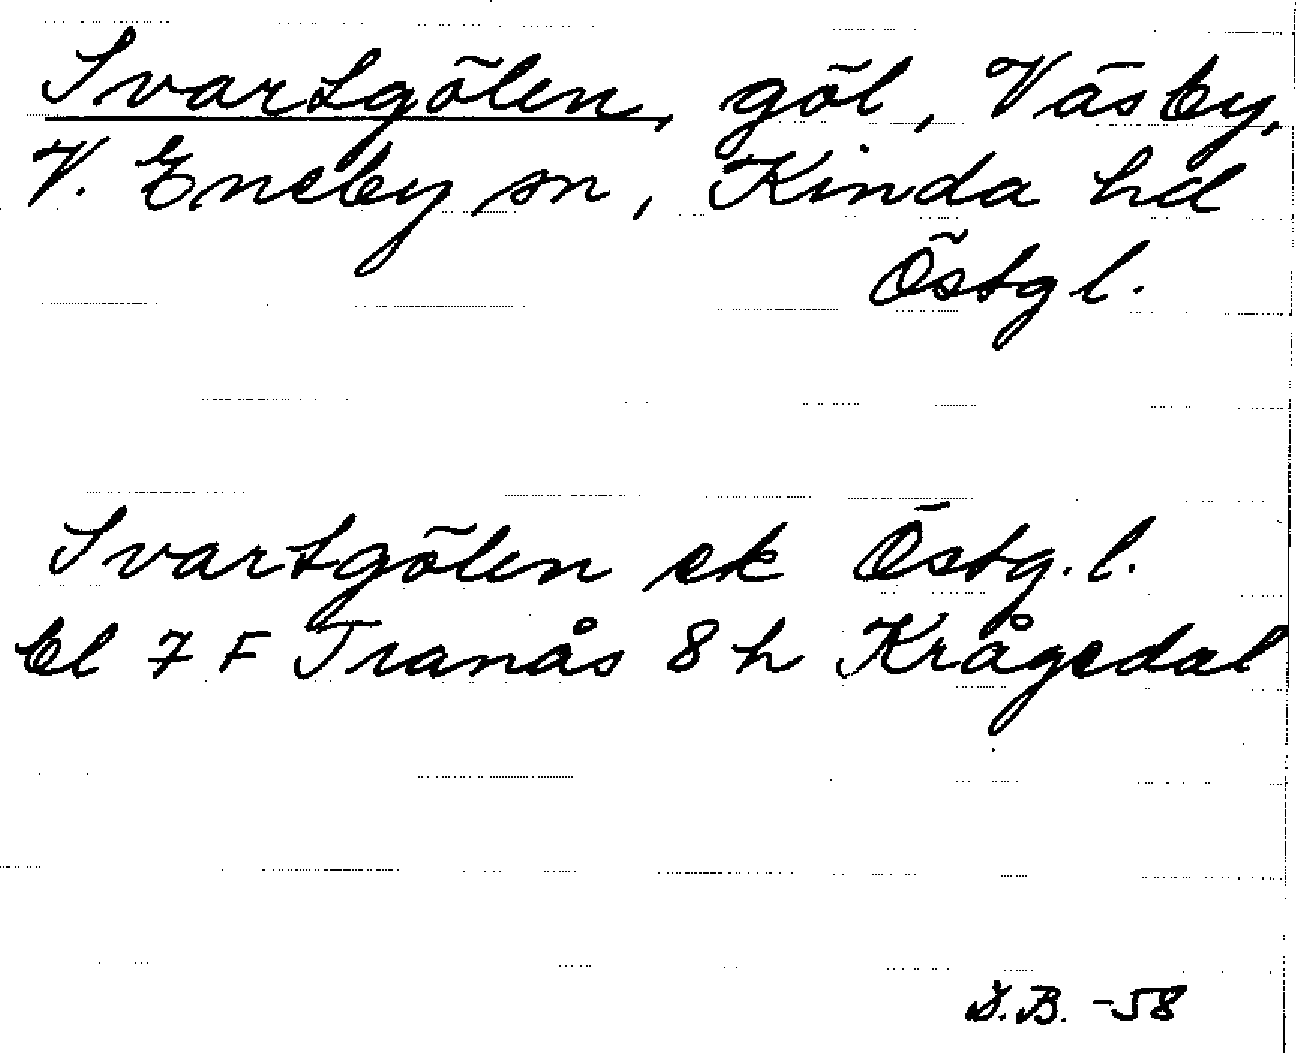 Svartgölen, göl, Väsby,
V. Eneby sn, Kinda hd
Östgl.
Svartgölen ek Östg.l.
bl 7 F Tranås 8 h Krågedal
D.B. -58